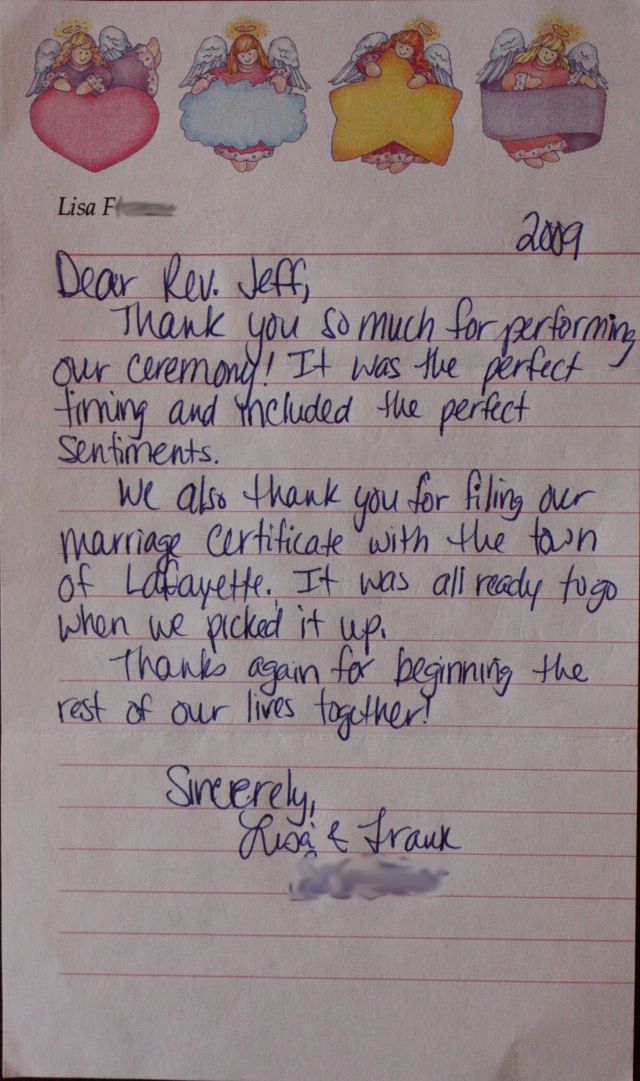 Lisa F
2009
Dear Rev. Jeff,
Thank you so much for performing
our ceremony! It was the perfect
timing and included the perfect
sentiments.
We also thank you for filing our
marriage certificate with the town
of Lafayette. It was all ready to go
when we picked it up.
Thanks again for beginning the
rest of our lives together!
Sincerely,
Lisa & Frank